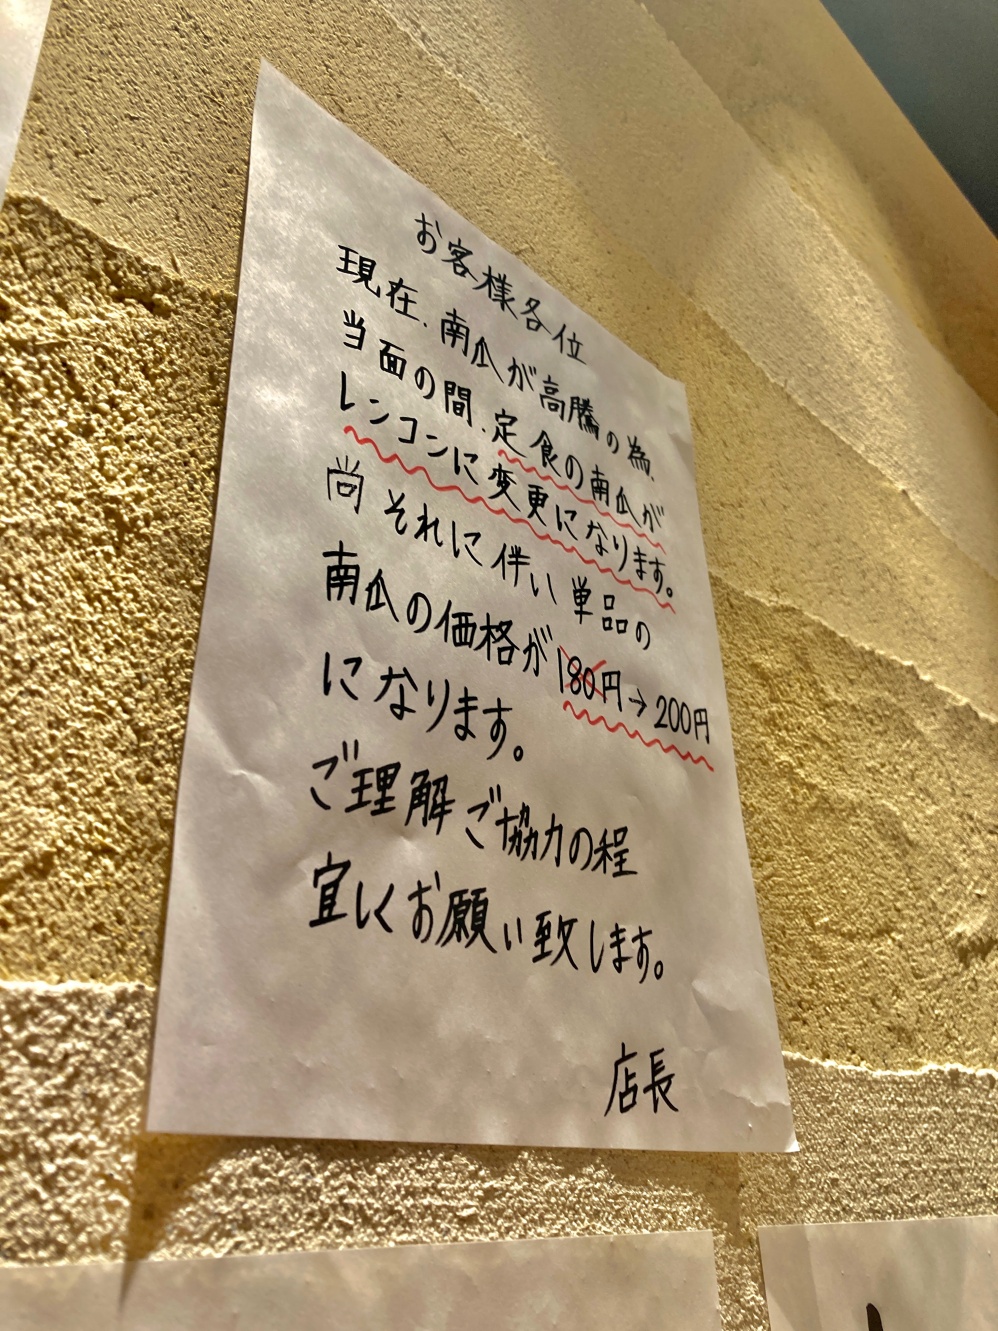 お客様各位
現在、南瓜が高騰の為、
当面の間、定食の南瓜が
レンコンに変更になります。
尚それに伴い単品の
南瓜の価格が180円→200円
になります。
ご理解ご協力の程
宜しくお願い致します。
店長